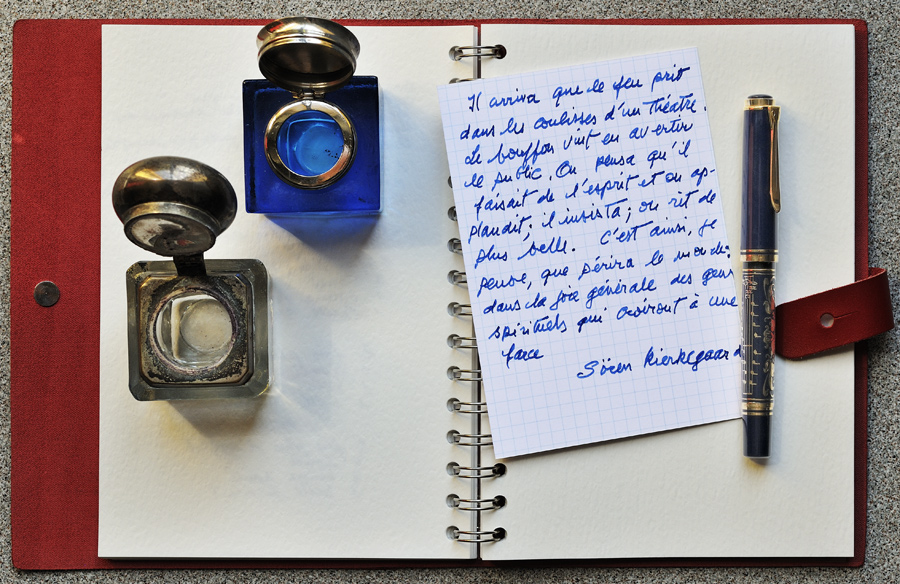 Il arriva que le feu prit
dans les coulisses d'un théatre.
Le bouffon vint en avertir
le public. On pensa qu'il
faisait de l'esprit et on ap-
plaudit; il insista; on rit de
plus belle. C'est ainsi, je
pense, que périra le monde:
dans la joie générale des gens
spirituels qui croiront à une
farce
Sören Kierkegaard